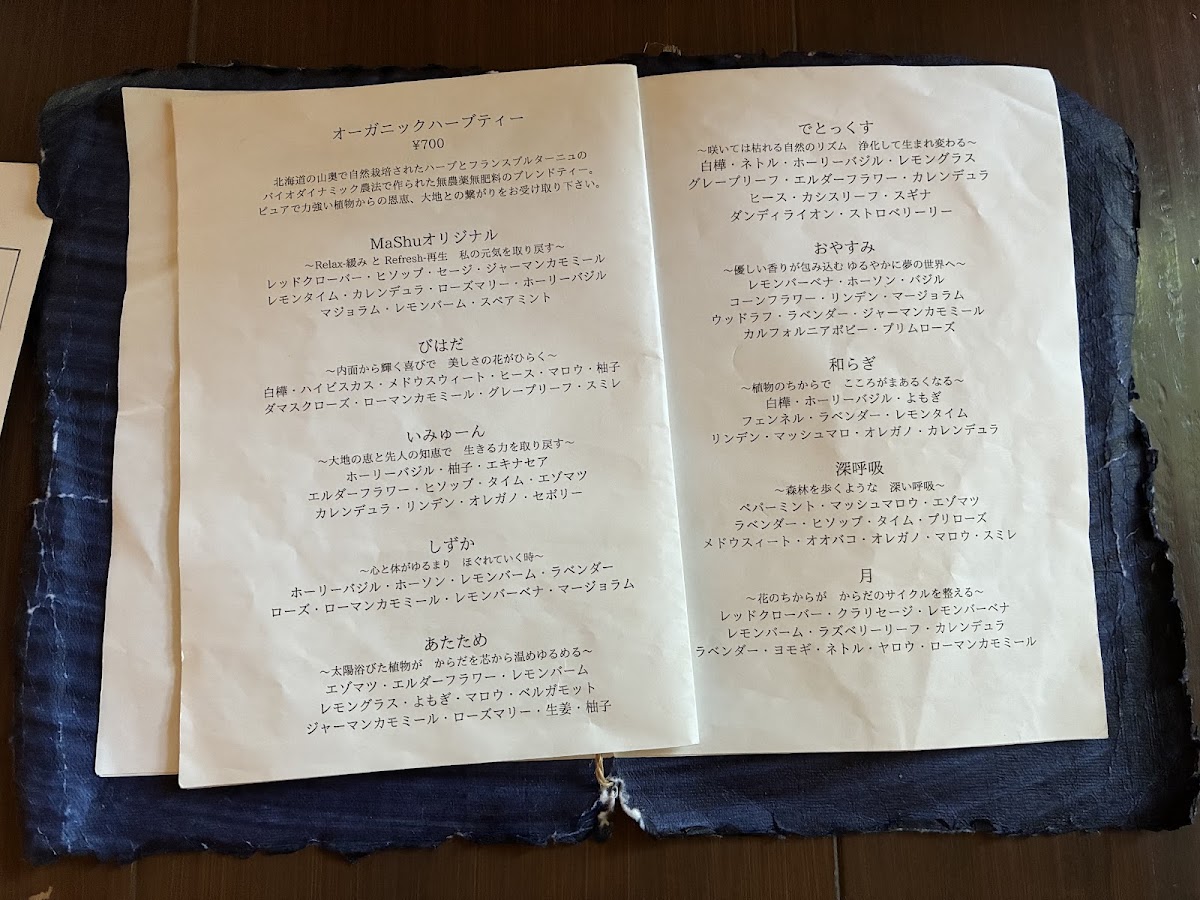 オーガニックハーブティー
¥700
北海道の山奥で自然栽培されたハーブとフランスブルターニュの
バイオダイナミック農法で作られた無農薬無肥料のブレンドティー。
ピュアで力強い植物からの恩恵、大地との繋がりをお受け取り下さい。
MaShuオリジナル
〜Relax-緩み と Refresh-再生　私の元気を取り戻す〜
レッドクローバー・ヒソップ・セージ・ジャーマンカモミール
レモンタイム・カレンデュラ・ローズマリー・ホーリーバジル
マジョラム・レモンバーム・スペアミント
びはだ
〜内面から輝く喜びで　美しさの花がひらく〜
白樺・ハイビスカス・メドウスウィート・ヒース・マロウ・柚子
ダマスクローズ・ローマンカモミール・グレープリーフ・スミレ
いみゅーん
〜大地の恵と先人の知恵で　生きる力を取り戻す〜
ホーリーバジル・柚子・エキナセア
エルダーフラワー・ヒソップ・タイム・エゾマツ
カレンデュラ・リンデン・オレガノ・セボリー
しずか
〜心と体がゆるまり　ほぐれていく時〜
ホーリーバジル・ホーソン・レモンバーム・ラベンダー
ローズ・ローマンカモミール・レモンバーベナ・マージョラム
あたため
〜太陽浴びた植物が　からだを芯から温めゆるめる〜
エゾマツ・エルダーフラワー・レモンバーム
レモングラス・よもぎ・マロウ・ベルガモット
ジャーマンカモミール・ローズマリー・生姜・柚子
でとっくす
〜咲いては枯れる自然のリズム　浄化して生まれ変わる〜
白樺・ネトル・ホーリーバジル・レモングラス
グレープリーフ・エルダーフラワー・カレンデュラ
ヒース・カシスリーフ・スギナ
ダンディライオン・ストロベリーリー
おやすみ
〜優しい香りが包み込む ゆるやかに夢の世界へ〜
レモンバーベナ・ホーソン・バジル
コーンフラワー・リンデン・マージョラム
ウッドラフ・ラベンダー・ジャーマンカモミール
カルフォルニアポピー・プリムローズ
和らぎ
〜植物のちからで　こころがまあるくなる〜
白樺・ホーリーバジル・よもぎ
フェンネル・ラベンダー・レモンタイム
リンデン・マッシュマロ・オレガノ・カレンデュラ
深呼吸
〜森林を歩くような　深い呼吸〜
ペパーミント・マッシュマロウ・エゾマツ
ラベンダー・ヒソップ・タイム・プリローズ
メドウスィート・オオバコ・オレガノ・マロウ・スミレ
月
〜花のちからが　からだのサイクルを整える〜
レッドクローバー・クラリセージ・レモンバーベナ
レモンバーム・ラズベリーリーフ・カレンデュラ
ラベンダー・ヨモギ・ネトル・ヤロウ・ローマンカモミール